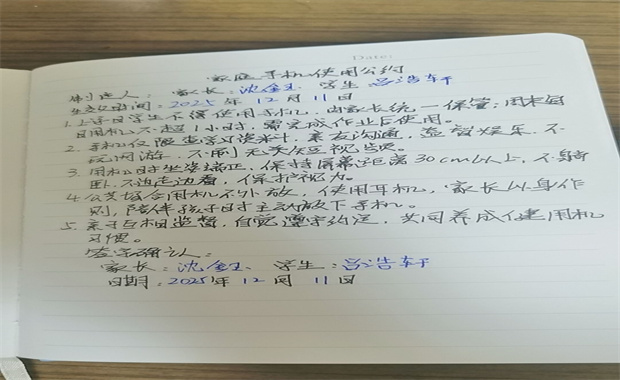 Date:
家庭手机使用公约
制定人： 家长：沈金玉 学生 吕浩轩
生效时间：2025年12月11日
1.上学日学生不得使用手机，由家长统一保管；周末每
日用机不超1小时，需完成作业后使用。
2.手机仅限查学习资料、亲友沟通，益智娱乐，不
玩网游，不刷无关短视频。
3.用机时坐姿端正，保持屏幕距离30cm以上，不躺
卧、不边走边看，保护视力。
4.公共场合用机不外放，使用耳机，家长以身作
则，陪伴孩子时主动放下手机。
5.亲子互相监督，自觉遵守约定，共同养成健康用机
习惯。
签字确认：
家长：沈金玉 学生：吕浩轩
日期：2025年12月11日